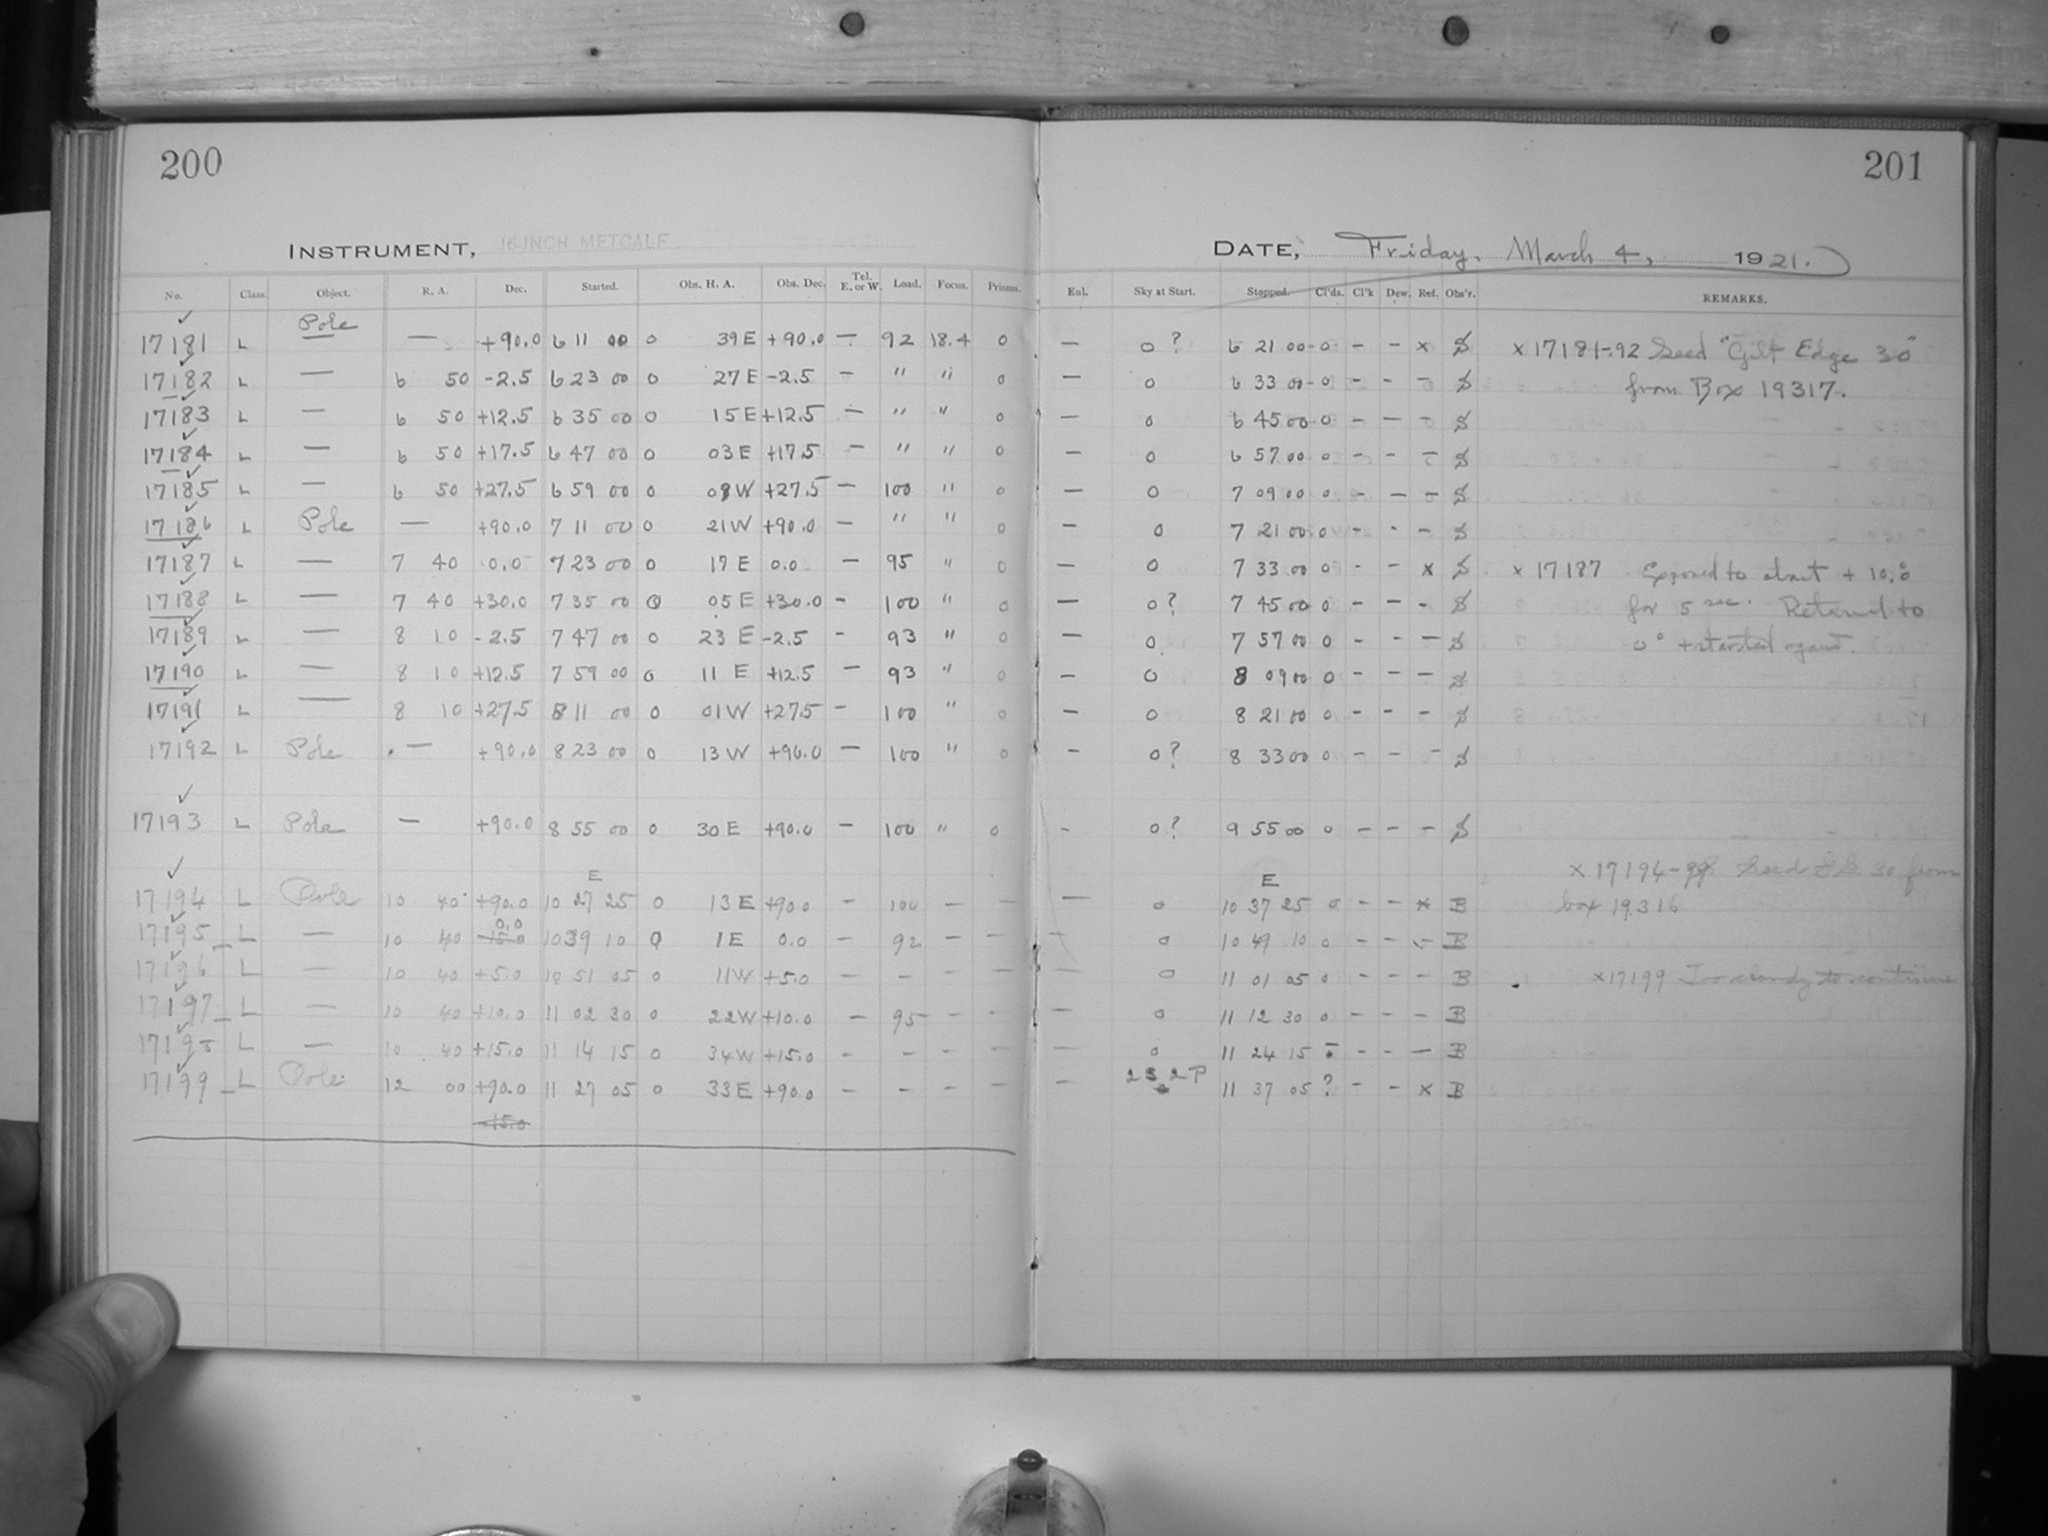 200
201
INSTRUMENT, 16-INCH METCALF
DATE, Friday, March 4, 1921.
No. Class. Object. R. A. Dec. Started. Obs. H. A. Obs. Dec. Tel. E. or W. Load. Focus. Prisms. Enl. Sky at Start. Stopped. Cl'ds. Cl'k Dew. Ref. Obs'r. REMARKS.
17181 L Pole — — +90.0 6 11 00 0 39 E +90.0 — 92 18.4 0 — 0? 6 21 00 0 – – x S x 17181-92 Seed "Gilt Edge 30"
17182 L — 6 50 -2.5 6 23 00 0 27 E -2.5 — " " 0 — 0 6 33 00 0 – – – S from Box 19317.
17183 L — 6 50 +12.5 6 35 00 0 15 E +12.5 — " " 0 — 0 6 45 00 0 – – – S
17184 L — 6 50 +17.5 6 47 00 0 03 E +17.5 — " " 0 — 0 6 57 00 0 – – – S
17185 L — 6 50 +27.5 6 59 00 0 09 W +27.5 — 100 " 0 — 0 7 09 00 0 – – – S
17186 L Pole — +90.0 7 11 00 0 21 W +90.0 — " " 0 — 0 7 21 00 0 – – – S
17187 L — 7 40 0.0 7 23 00 0 17 E 0.0 — 95 " 0 — 0 7 33 00 0 – – x S x 17187 Exposed to about +10.0
17188 L — 7 40 +30.0 7 35 00 0 05 E +30.0 — 100 " 0 — 0? 7 45 00 0 – – – S for 5 sec. Returned to
17189 L — 8 10 -2.5 7 47 00 0 23 E -2.5 — 93 " 0 — 0 7 57 00 0 – – – S 0° + started again.
17190 L — 8 10 +12.5 7 59 00 0 11 E +12.5 — 93 " 0 — 0 8 09 00 0 – – – S
17191 L — 8 10 +27.5 8 11 00 0 01 W +27.5 — 100 " 0 — 0 8 21 00 0 – – – S
17192 L Pole — +90.0 8 23 00 0 13 W +90.0 — 100 " 0 — 0? 8 33 00 0 – – – S
17193 L Pole — +90.0 8 55 00 0 30 E +90.0 — 100 " 0 – 0? 9 55 00 0 – – – S
E E x 17194-99 Seed G.E. 30 from
17194 L Pole 10 40 +90.0 10 27 25 0 13 E +90.0 – 100 – – — 0 10 37 25 0 – – x B box 19316
0.0
17195 L — 10 40 15.0 10 39 10 0 1 E 0.0 – 92 – – – 0 10 49 10 0 – – – B
17196 L — 10 40 +5.0 10 51 05 0 11 W +5.0 – – – – – 0 11 01 05 0 – – – B x17199 Too cloudy to continue
17197 L — 10 40 +10.0 11 02 30 0 22 W +10.0 – 95 – – – 0 11 12 30 0 – – – B
17198 L — 10 40 +15.0 11 14 15 0 34 W +15.0 – – – – – 0 11 24 15 0 – – – B
17199 L Pole 12 00 +90.0 11 27 05 0 33 E +90.0 – – – – – 2 S 2 P 11 37 05 ? – – x B
+15.0